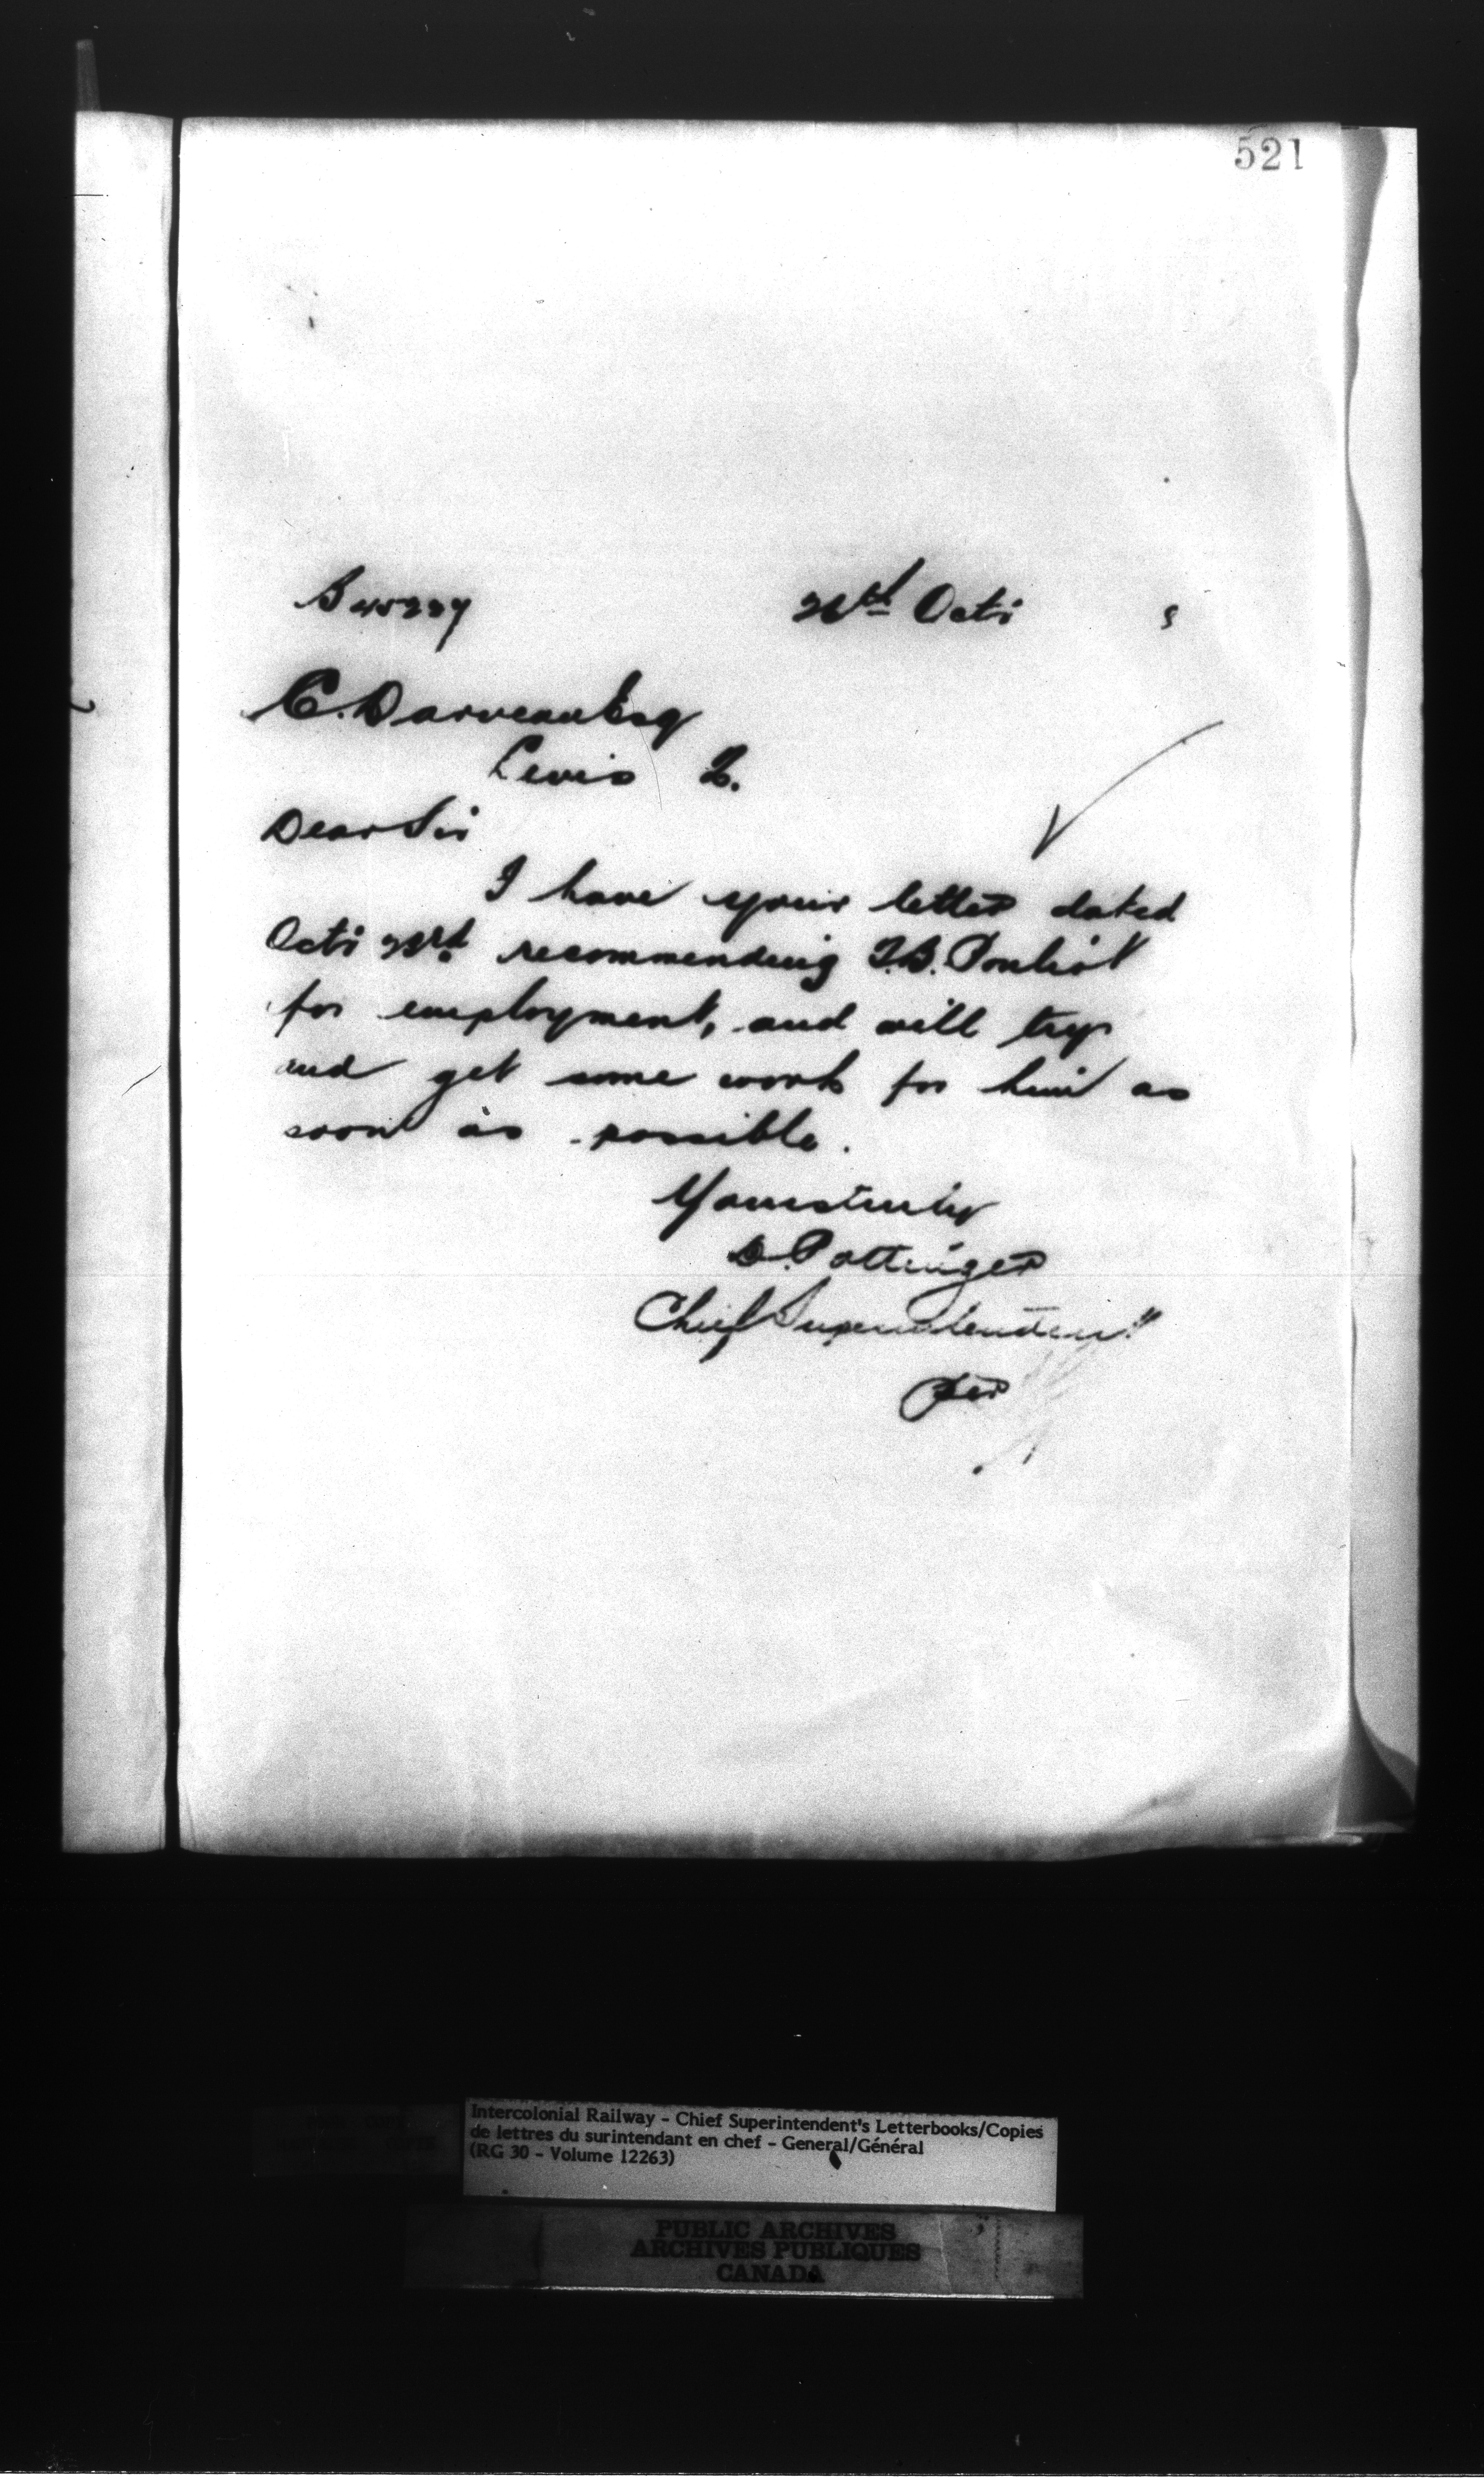 521
B 45237
26th Oct. 5
C. Darveau Esq
Levis Q.
Dear Sir
I have your letter dated
Oct. 23rd. recommending J.B. Pouliot
for employment, and will try
and get some work for him as
soon as possible.
Yours truly
D. Pottinger
Chief Superintendent
Per
Intercolonial Railway - Chief Superintendent's Letterbooks/Copies
de lettres du surintendant en chef - General/Général
(RG 30 - Volume 12263)
PUBLIC ARCHIVES
ARCHIVES PUBLIQUES
CANADA